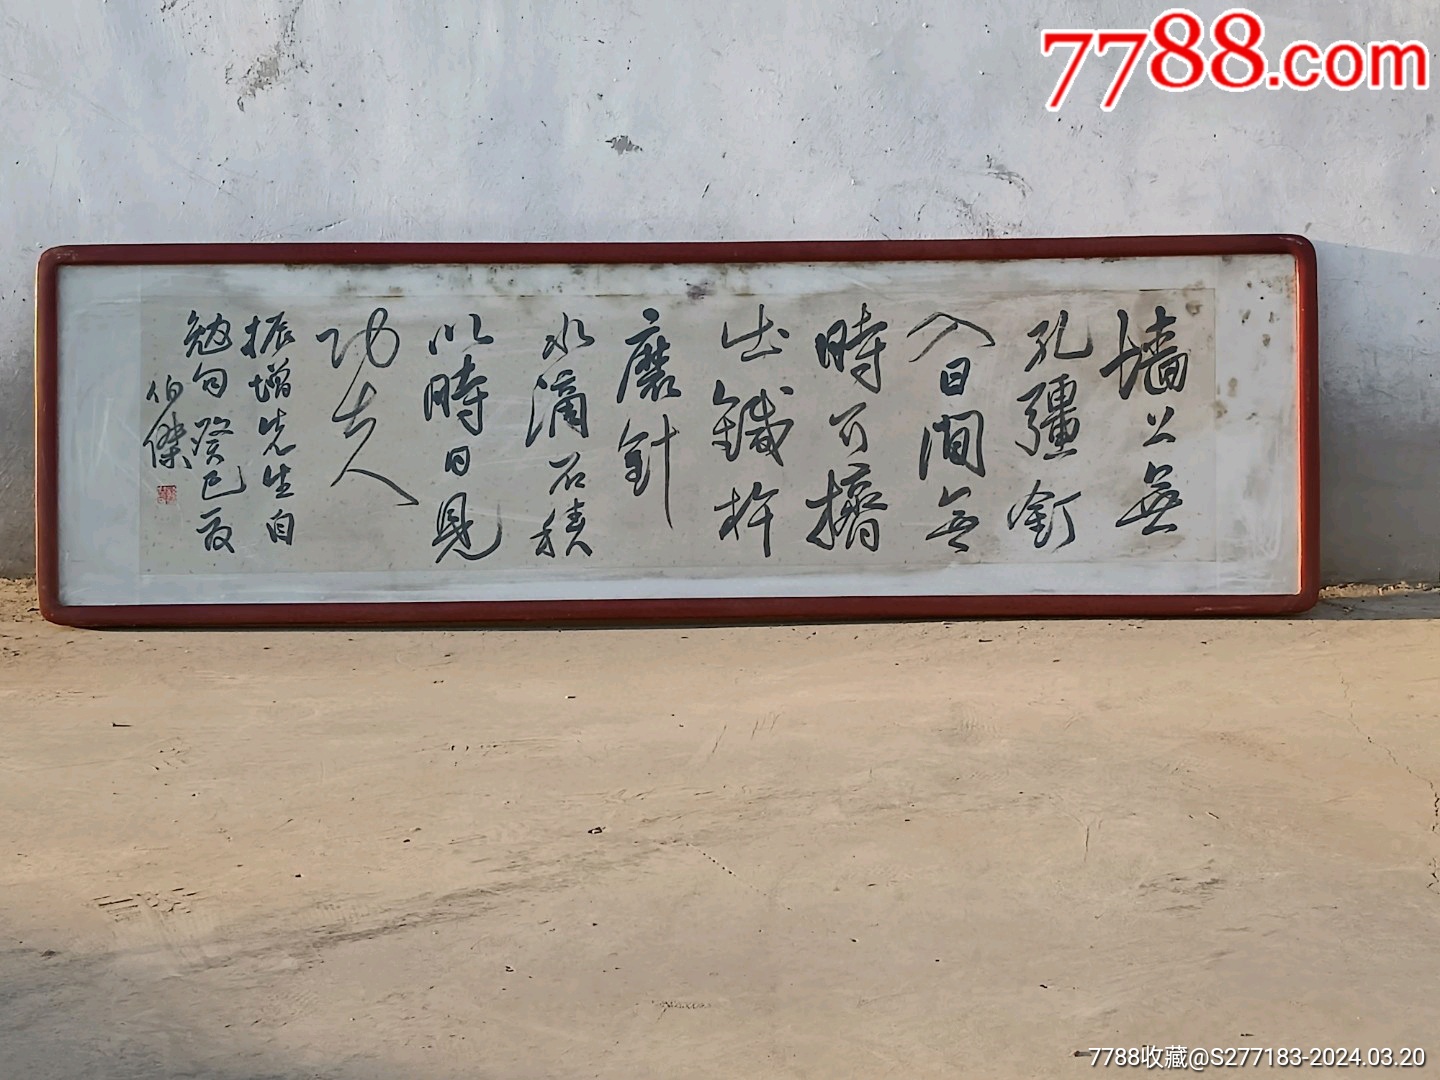 7788.com
墙上無
孔彊釘
入日間無
時可擠
出鐵杵
磨針
水滴石積
以時日見
功夫人
振增先生自
勉句癸巳夏
伯傑
7788收藏@S277183-2024.03.20